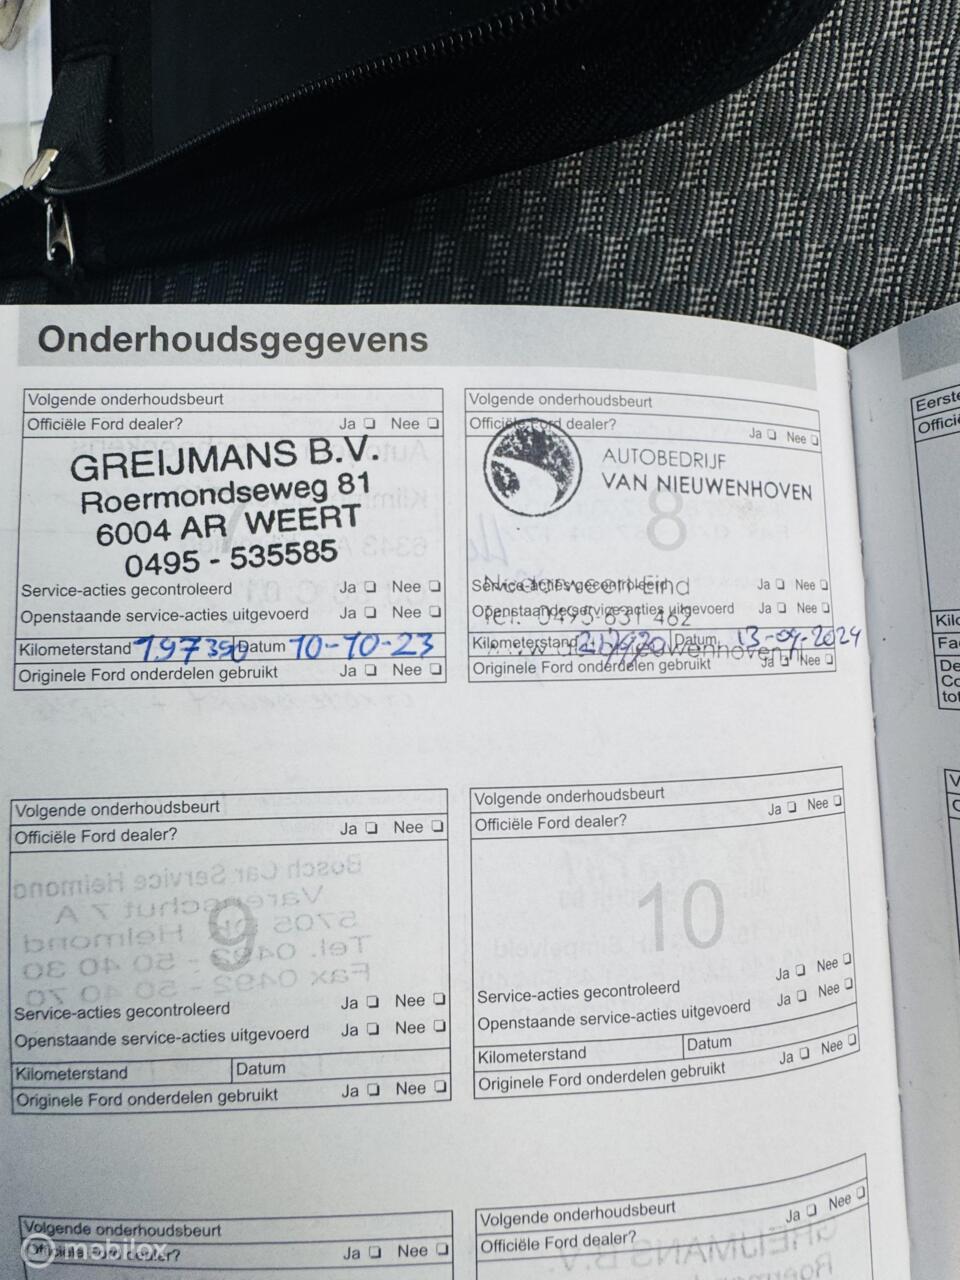 Onderhoudsgegevens
Volgende onderhoudsbeurt
Officiële Ford dealer? Ja Nee
GREIJMANS B.V.
Roermondseweg 81
6004 AR WEERT
0495 - 535585
7
Service-acties gecontroleerd Ja Nee
Openstaande service-acties uitgevoerd Ja Nee
Kilometerstand 197350 Datum 10-10-23
Originele Ford onderdelen gebruikt Ja Nee
Volgende onderhoudsbeurt
Officiële Ford dealer? Ja Nee
AUTOBEDRIJF
VAN NIEUWENHOVEN
8
Nederweert Eind
Service-acties gecontroleerd Ja Nee
Tel. 0495-631 462
Openstaande service-acties uitgevoerd Ja Nee
Kilometerstand Datum 13-09-2024
Originele Ford onderdelen gebruikt Ja Nee
Volgende onderhoudsbeurt
Officiële Ford dealer? Ja Nee
9
Service-acties gecontroleerd Ja Nee
Openstaande service-acties uitgevoerd Ja Nee
Kilometerstand Datum
Originele Ford onderdelen gebruikt Ja Nee
Volgende onderhoudsbeurt
Officiële Ford dealer? Ja Nee
10
Service-acties gecontroleerd Ja Nee
Openstaande service-acties uitgevoerd Ja Nee
Kilometerstand Datum
Originele Ford onderdelen gebruikt Ja Nee
Volgende onderhoudsbeurt
Officiële Ford dealer? Ja Nee
Volgende onderhoudsbeurt
Officiële Ford dealer? Ja Nee
mobilox